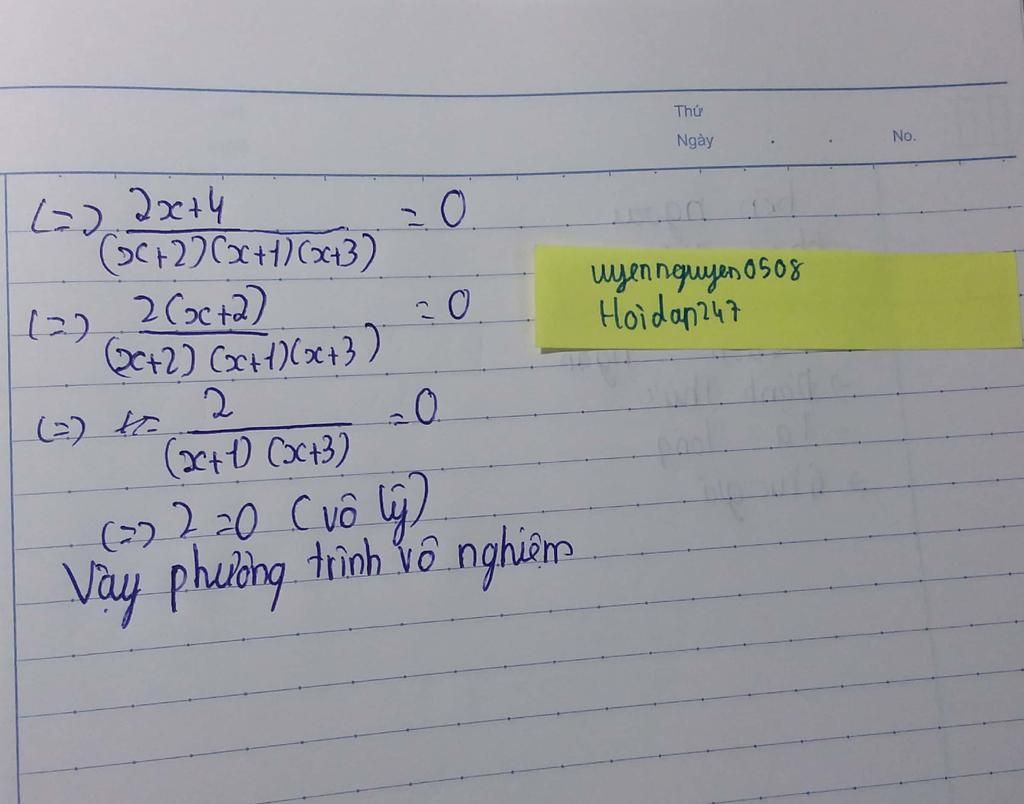 Thứ
Ngày . . No.
(=) 2x+4 / (x+2)(x+1)(x+3) = 0
(=) 2(x+2) / (x+2) (x+1)(x+3) = 0
(=) 2 / (x+1) (x+3) = 0
(=) 2 = 0 (vô lý)
Vậy phương trình vô nghiệm
uyennguyen0508
Hoidap247